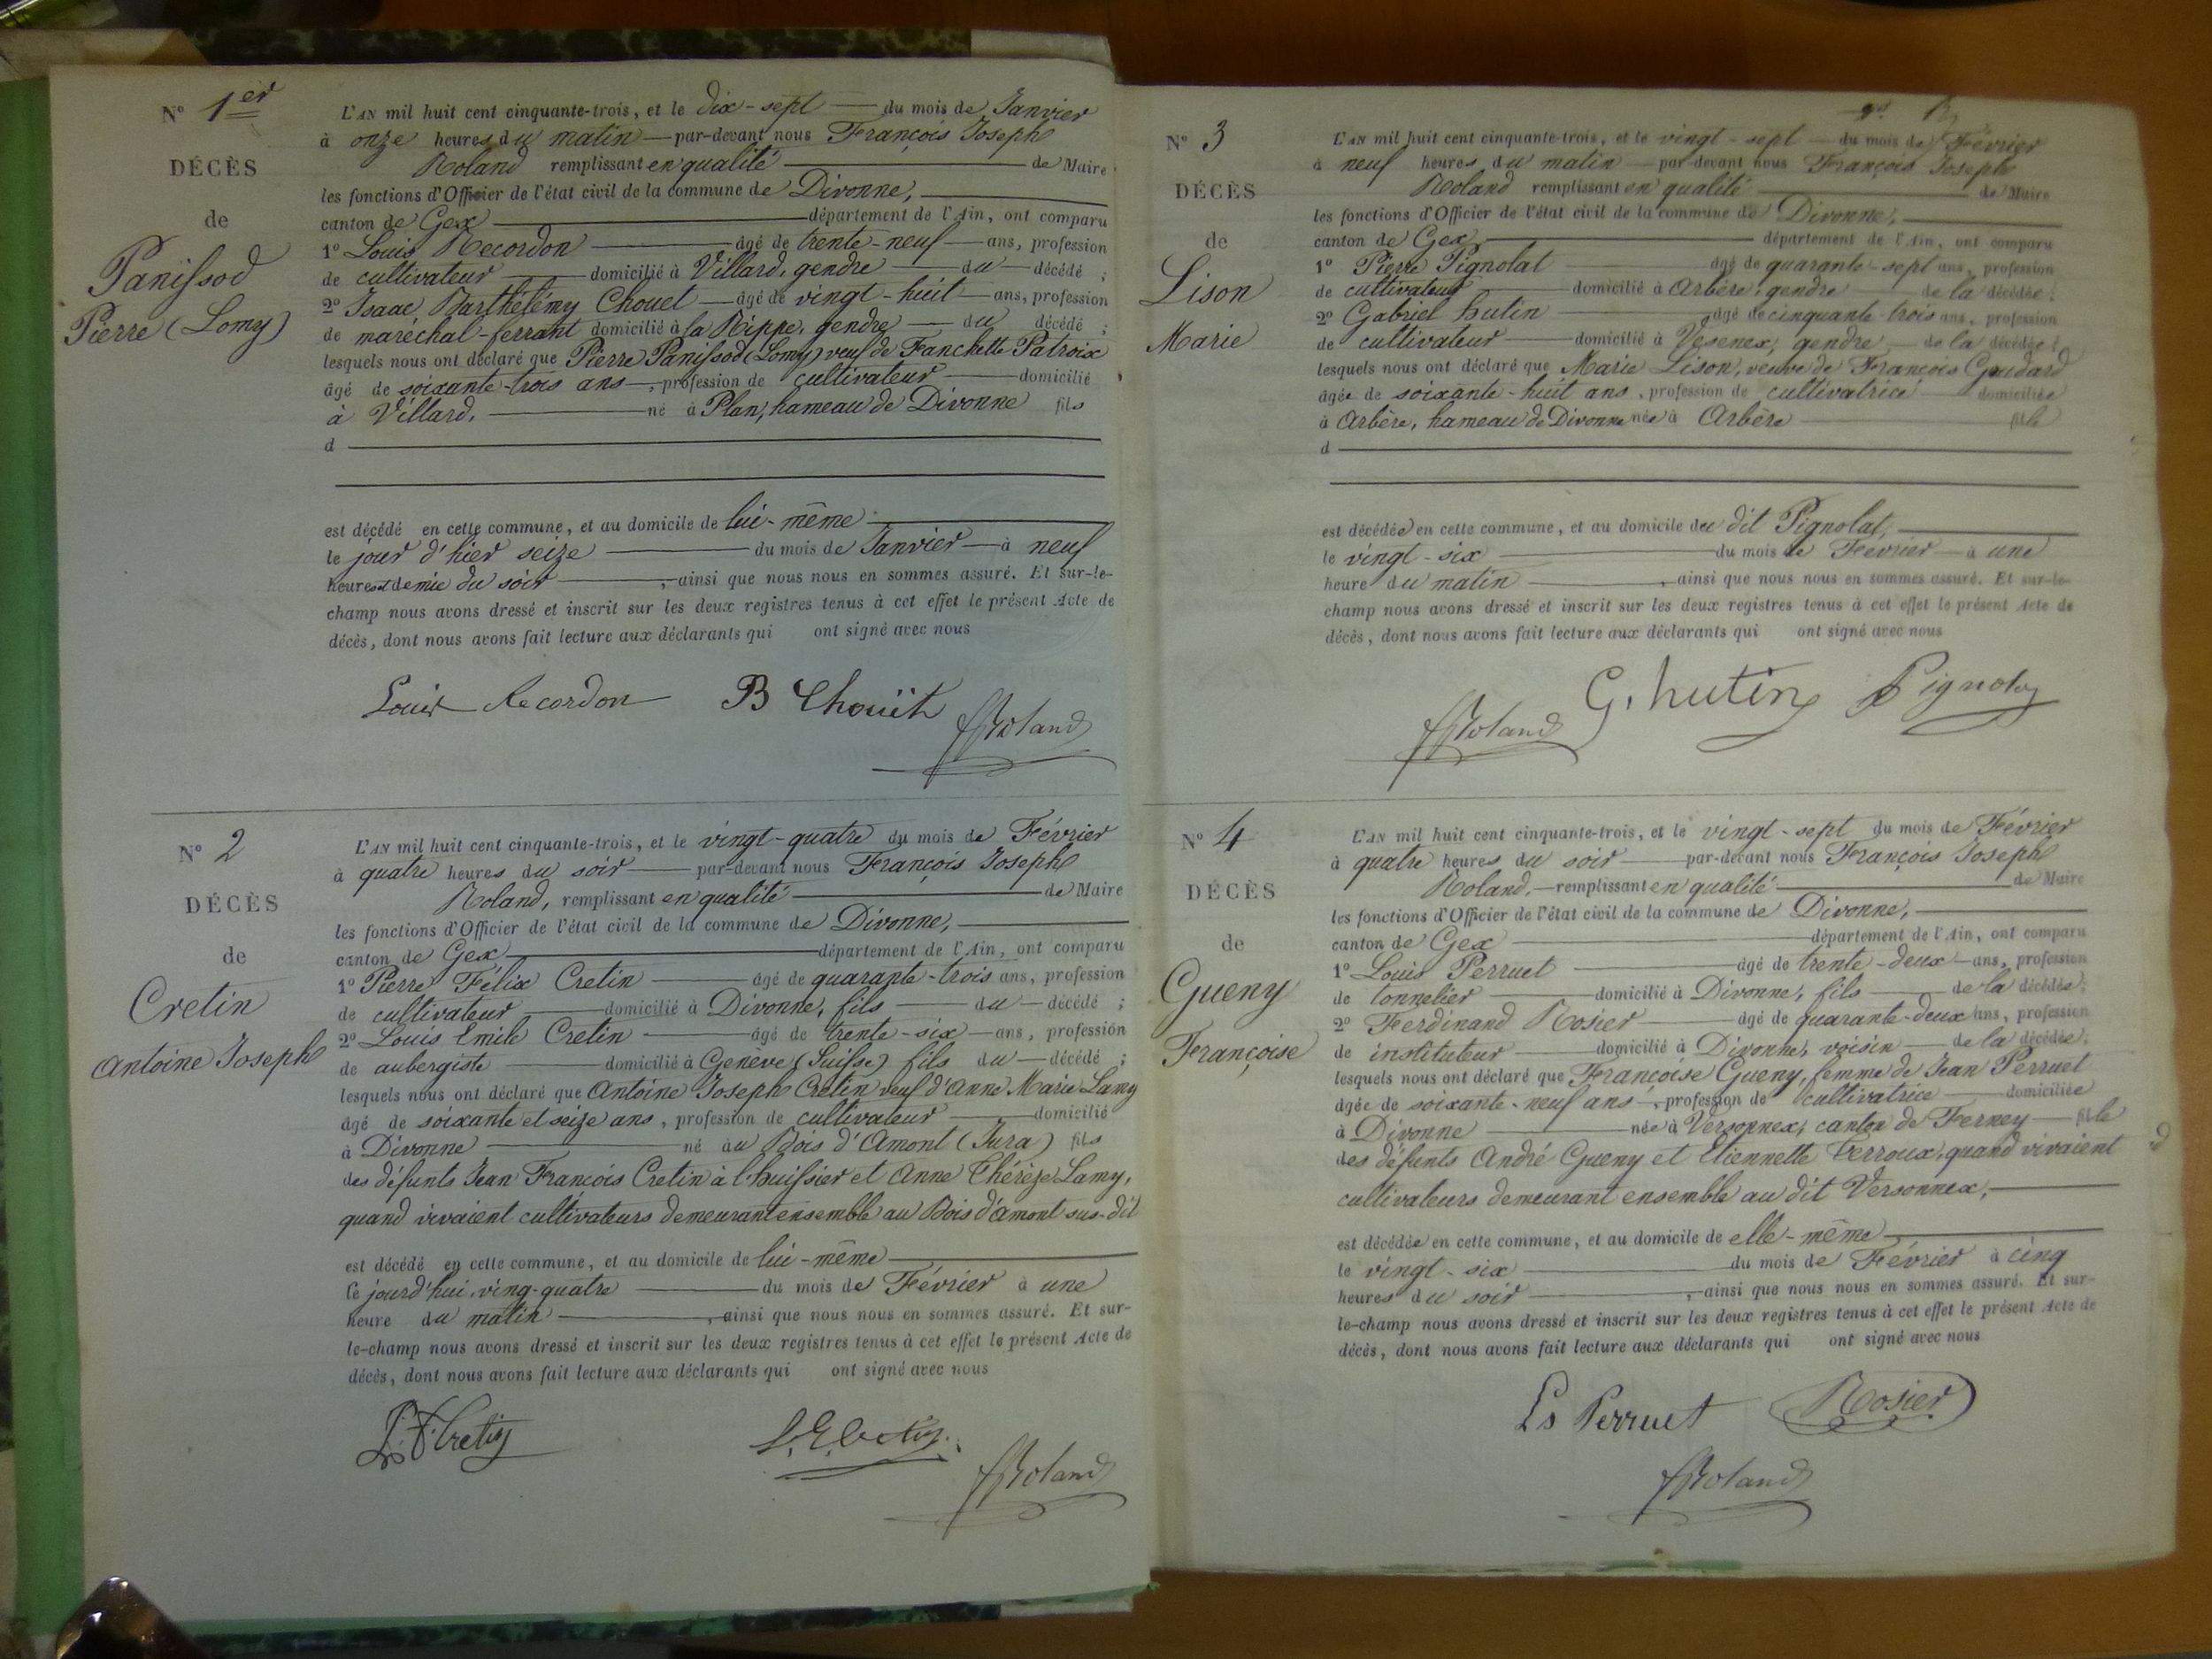 N° 1er
DÉCÈS
de
Panissod
Pierre (Lomy)
L'AN mil huit cent cinquante-trois, et le dix-sept du mois de Janvier
à onze heures du matin par-devant nous François Joseph
Roland remplissant en qualité de Maire
les fonctions d'Officier de l'état civil de la commune de Divonne,
canton de Gex département de l'Ain, ont comparu
1° Louis Recordon âgé de trente-neuf ans, profession
de cultivateur domicilié à Villard, gendre du décédé ;
2° Isaac Barthélémy Chouet âgé de vingt-huit ans, profession
de maréchal-ferrant domicilié à la Rippe, gendre du décédé ;
lesquels nous ont déclaré que Pierre Panissod (Lomy) veuf de Fanchette Patroix
âgé de soixante-trois ans, profession de cultivateur domicilié
à Villard, né à Plan, hameau de Divonne fils
d
est décédé en cette commune, et au domicile de lui-même
le jour d'hier seize du mois de Janvier à neuf
heures et demie du soir, ainsi que nous nous en sommes assuré. Et sur-le-
champ nous avons dressé et inscrit sur les deux registres tenus à cet effet le présent Acte de
décès, dont nous avons fait lecture aux déclarants qui ont signé avec nous
Louis Recordon B Chouët
Roland
N° 2
DÉCÈS
de
Cretin
Antoine Joseph
L'AN mil huit cent cinquante-trois, et le vingt-quatre du mois de Février
à quatre heures du soir par-devant nous François Joseph
Roland, remplissant en qualité de Maire
les fonctions d'Officier de l'état civil de la commune de Divonne,
canton de Gex département de l'Ain, ont comparu
1° Pierre Félix Cretin âgé de quarante-trois ans, profession
de cultivateur domicilié à Divonne, fils du décédé ;
2° Louis Emile Cretin âgé de trente-six ans, profession
de aubergiste domicilié à Genève (Suisse) fils du décédé ;
lesquels nous ont déclaré que Antoine Joseph Cretin veuf d'Anne Marie Lamy
âgé de soixante et seize ans, profession de cultivateur domicilié
à Divonne né au Bois d'Amont (Jura) fils
des défunts Jean François Cretin à l'huissier et Anne Thérèze Lamy,
quand vivaient cultivateurs demeurant ensemble au Bois d'amont sus-dit
est décédé en cette commune, et au domicile de lui-même
le jourd'hui, ving-quatre du mois de Février à une
heure du matin, ainsi que nous nous en sommes assuré. Et sur-
le-champ nous avons dressé et inscrit sur les deux registres tenus à cet effet le présent Acte de
décès, dont nous avons fait lecture aux déclarants qui ont signé avec nous
P. F. Cretin L. E. Cretin
Roland
N° 3
DÉCÈS
de
Lison
Marie
L'AN mil huit cent cinquante-trois, et le vingt-sept du mois de Février
à neuf heures du matin par-devant nous François Joseph
Roland remplissant en qualité de Maire
les fonctions d'Officier de l'état civil de la commune de Divonne,
canton de Gex, département de l'Ain, ont comparu
1° Pierre Pignolat âgé de quarante-sept ans, profession
de cultivateur domicilié à Arbère, gendre de la décédée ;
2° Gabriel hutin âgé de cinquante-trois ans, profession
de cultivateur domicilié à Vesenex, gendre de la décédée ;
lesquels nous ont déclaré que Marie Lison, veuve de François Gaudard
âgée de soixante-huit ans, profession de cultivatrice domiciliée
à Arbère, hameau de Divonne née à Arbère fille
d
est décédée en cette commune, et au domicile du dit Pignolat,
le vingt-six du mois de Février à une
heure du matin, ainsi que nous nous en sommes assuré. Et sur-le-
champ nous avons dressé et inscrit sur les deux registres tenus à cet effet le présent Acte de
décès, dont nous avons fait lecture aux déclarants qui ont signé avec nous
G. hutin Pignolat
Roland
N° 4
DÉCÈS
de
Gueny
Françoise
L'AN mil huit cent cinquante-trois, et le vingt-sept du mois de Février
à quatre heures du soir par-devant nous François Joseph
Roland, remplissant en qualité de Maire
les fonctions d'Officier de l'état civil de la commune de Divonne,
canton de Gex département de l'Ain, ont comparu
1° Louis Perruet âgé de trente-deux ans, profession
de tonnelier domicilié à Divonne, fils de la décédée ;
2° Ferdinand Rosier âgé de quarante-deux ans, profession
de instituteur domicilié à Divonne, voisin de la décédée ;
lesquels nous ont déclaré que Françoise Gueny, femme de Jean Perruet
âgée de soixante-neuf ans, profession de cultivatrice domiciliée
à Divonne née à Versonnex, canton de Ferney fille
des défunts André Gueny et Etiennette Terroux, quand vivaient
cultivateurs demeurant ensemble au dit Versonnex,
est décédée en cette commune, et au domicile de elle-même
le vingt-six du mois de Février à cinq
heures du soir, ainsi que nous nous en sommes assuré. Et sur-
le-champ nous avons dressé et inscrit sur les deux registres tenus à cet effet le présent Acte de
décès, dont nous avons fait lecture aux déclarants qui ont signé avec nous
Ls Perruet Rosier
Roland